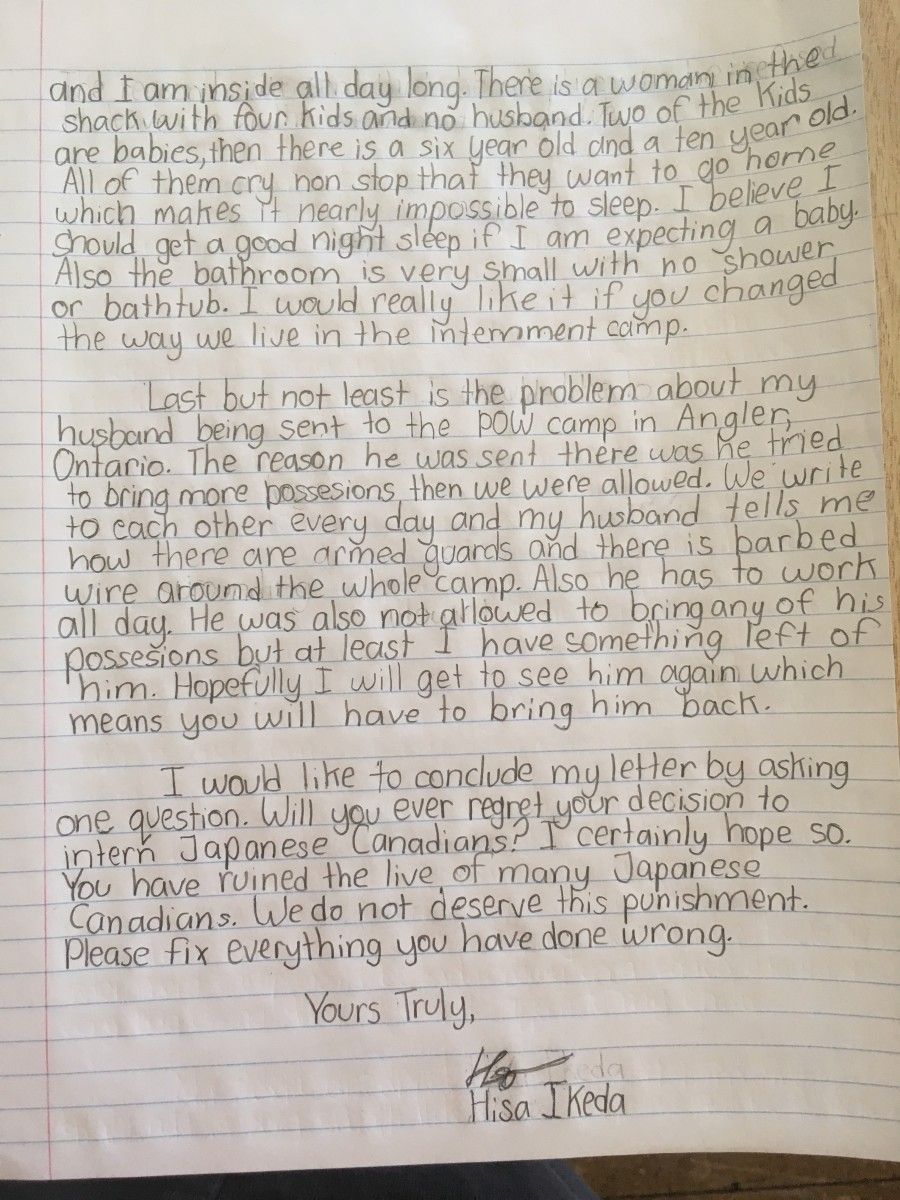 and I am inside all day long. There is a woman in the
shack with four kids and no husband. Two of the kids
are babies, then there is a six year old and a ten year old.
All of them cry non stop that they want to go home
which makes it nearly impossible to sleep. I believe I
should get a good night sleep if I am expecting a baby.
Also the bathroom is very small with no shower
or bathtub. I would really like it if you changed
the way we live in the internment camp.
Last but not least is the problem about my
husband being sent to the POW camp in Angler,
Ontario. The reason he was sent there was he tried
to bring more possesions, then we were allowed. We write
to each other every day and my husband tells me
how there are armed guards and there is barbed
wire around the whole camp. Also he has to work
all day. He was also not allowed to bring any of his
possesions but at least I have something left of
him. Hopefully I will get to see him again which
means you will have to bring him back.
I would like to conclude my letter by asking
one question. Will you ever regret your decision to
intern Japanese Canadians? I certainly hope so.
You have ruined the live of many Japanese
Canadians. We do not deserve this punishment.
Please fix everything you have done wrong.
Yours Truly,
Hisa Ikeda